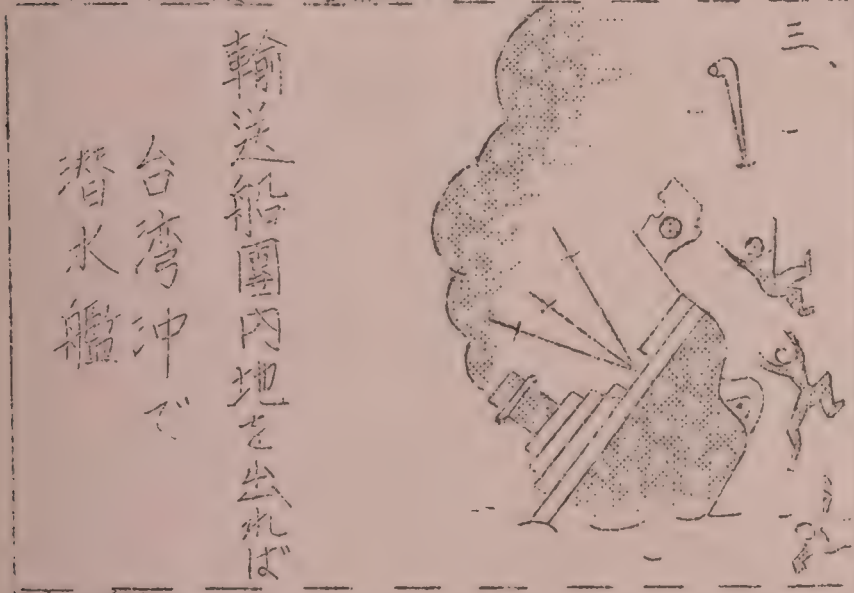 三、
輸送船團内地を出れば
台湾沖で
潜水艦